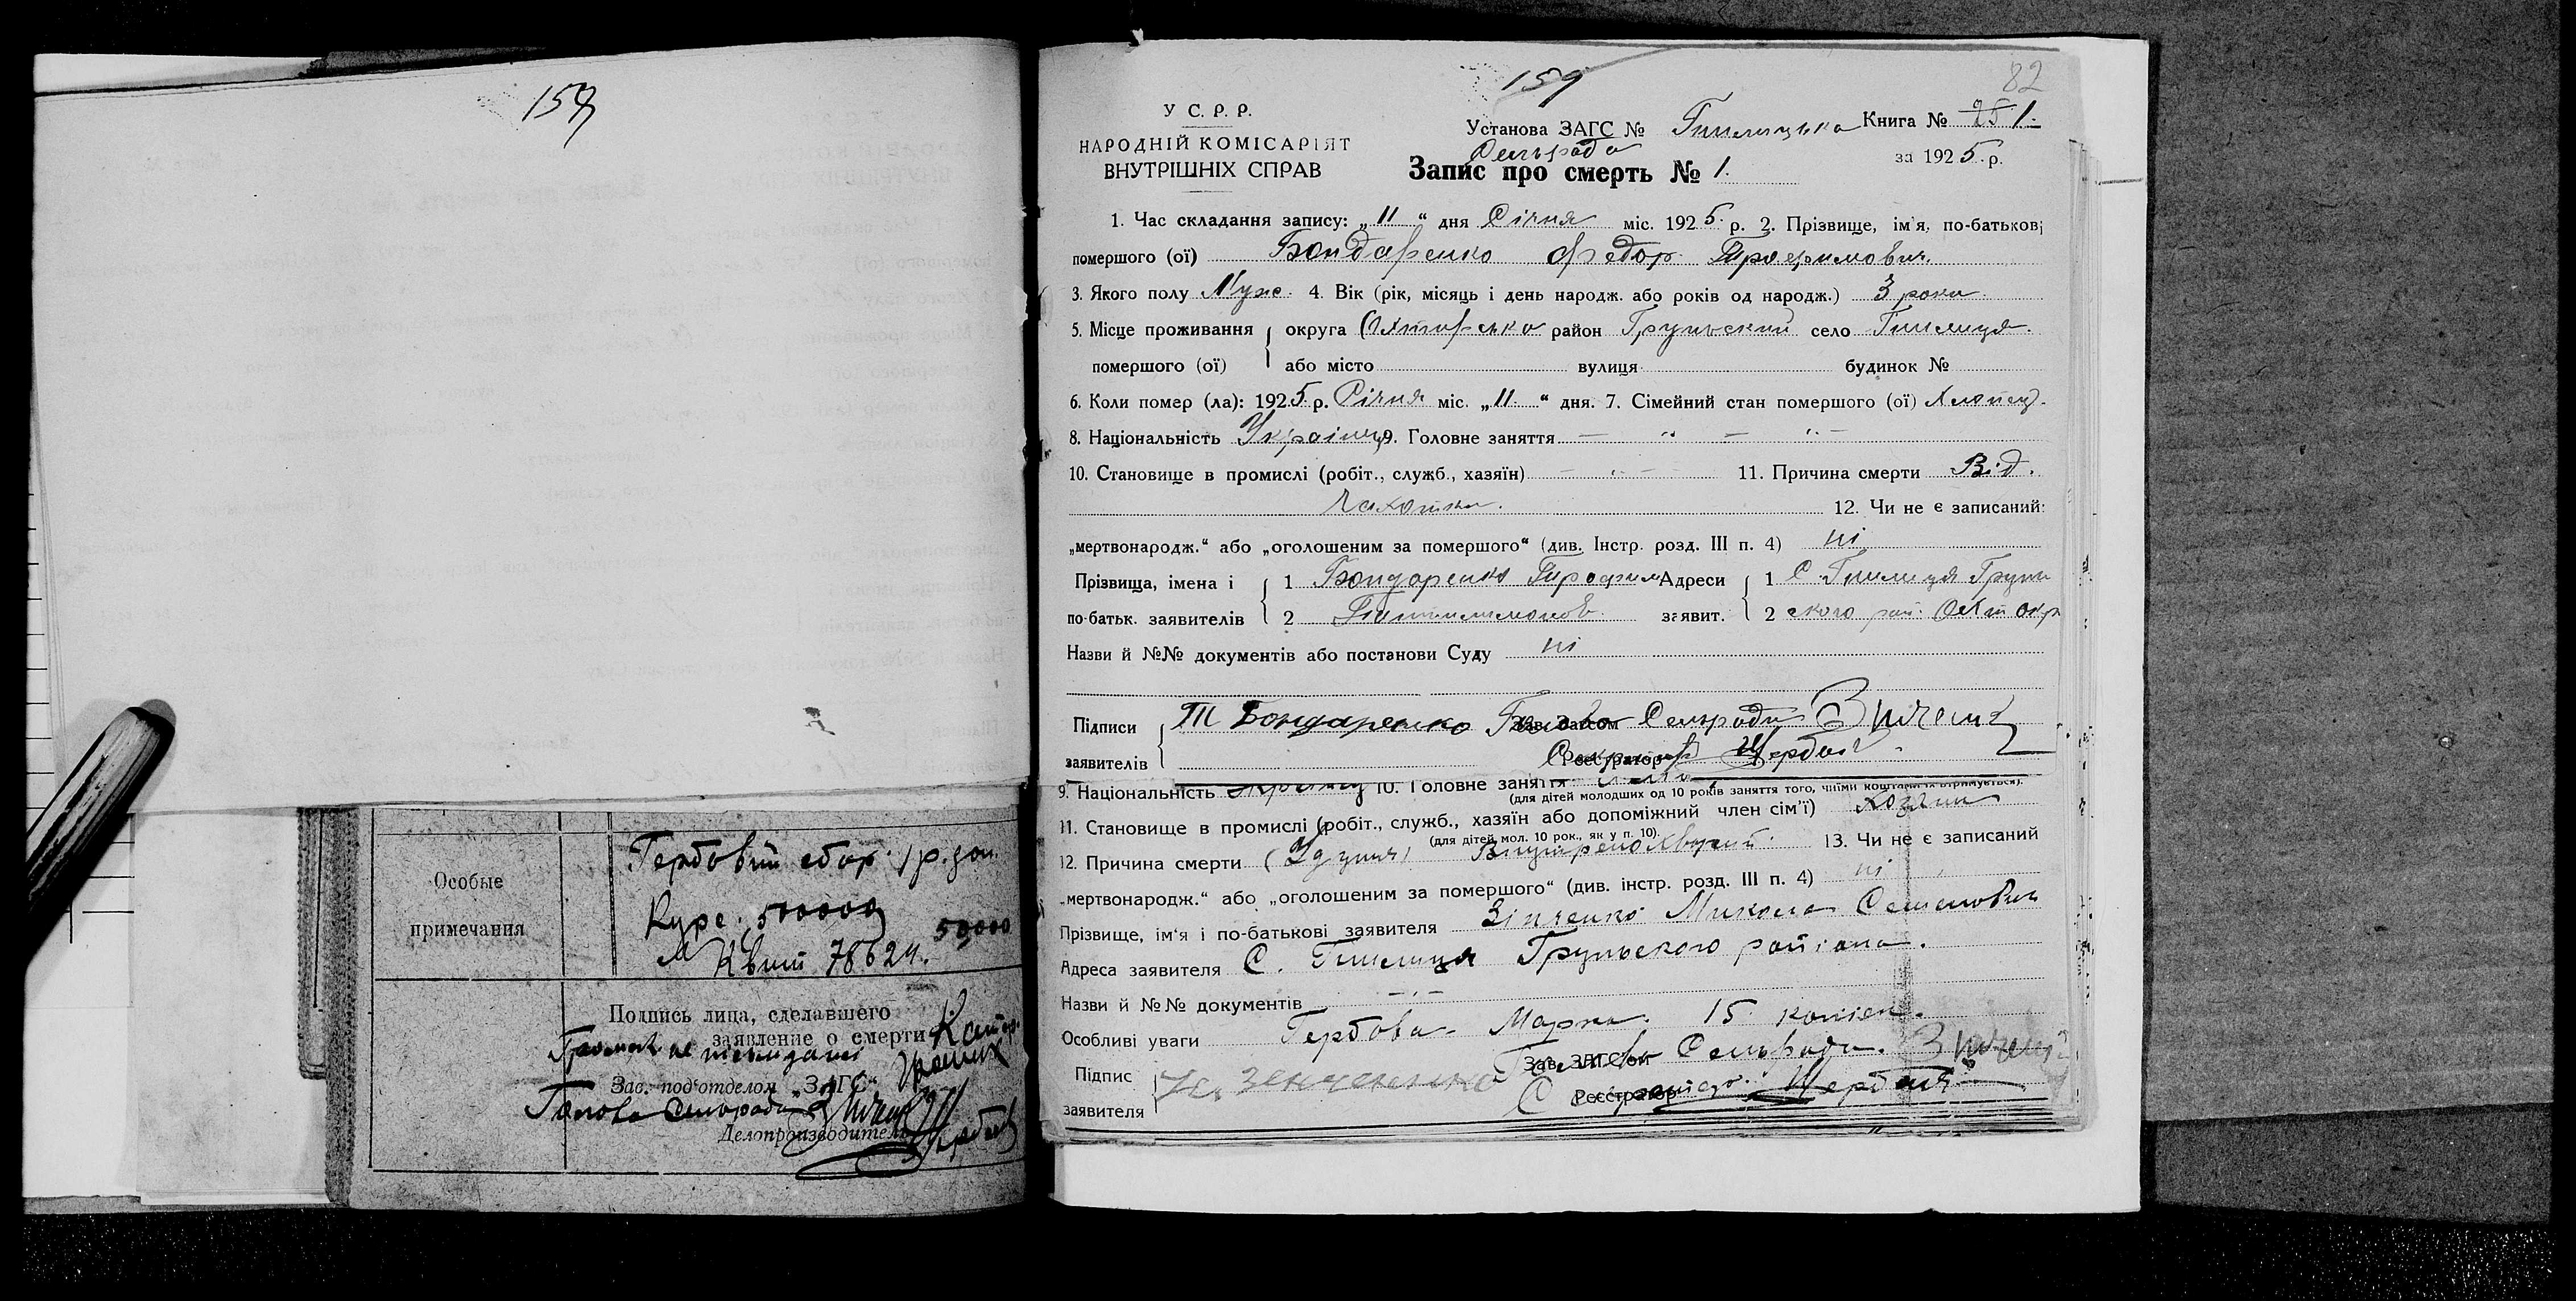 159
Особые
примечания
Гербовий сбор 1 р. зол.
Курс. 500000
50000
Квит 78624.
Подпись лица, сделавшего
заявление о смерти
Зав. подотделом „ЗАГС“
Голова Сельради
Делопроизводитель
159
82
У С. Р. Р.
НАРОДНІЙ КОМІСАРІЯТ
ВНУТРІШНІХ СПРАВ
Установа ЗАГС № Гнилицька Книга № 251.
Сельрада
за 1925 р.
Запис про смерть № 1.
1. Час складання запису: „11“ дня Січня міс. 1925 р. 2. Прізвище, ім'я, по-батькові
помершого (ої) Бондаренко Федор Трофимович
3. Якого полу Муж. 4. Вік (рік, місяць і день народж. або років од народж.) 3 роки.
5. Місце проживання округа Охтирсько район Грунський село Гнилиця.
помершого (ої) або місто вулиця будинок №
6. Коли помер (ла): 1925 р. Січня міс. „11“ дня. 7. Сімейний стан помершого (ої) Хлопец.
8. Національність Українц 9. Головне заняття — „ — „ —
10. Становище в промислі (робіт., служб., хазяїн) 11. Причина смерти Від.
Чахотки.
12. Чи не є записаний:
„мертвонародж.“ або „оголошеним за помершого“ (див. Інстр. розд. III п. 4) ні
Прізвища, імена і 1 Бондаренко Трофим Адреси 1 С. Гнилиця Грунь
по-батьк. заявителів 2 заявит. 2 ского рай. Охт окр
Назви й №№ документів або постанови Суду ні
Підписи Т Бондаренко Голова Сельради
Зав. Загсом
заявителів Секретар Щербак
Реєстратор
9. Національність 10. Головне заняття
(для дітей молодших од 10 років заняття того, чиїми коштами їх втримується).
11. Становище в промислі (робіт., служб., хазяїн або допоміжний член сім'ї) Хозяин
(для дітей мол. 10 рок., як у п. 10).
12. Причина смерти 13. Чи не є записаний
„мертвонародж.“ або „оголошеним за помершого“ (див. інстр. розд. III п. 4) ні
Прізвище, ім'я і по-батькові заявителя Зінченко Микола Семенович
Адреса заявителя С. Гнилиця Грунського району.
Назви й №№ документів
Особливі уваги Гербова Марка 15 копієк.
Підпис Зенченко Голова Сельради
Зав. ЗАГСом
заявителя Секретар Щербак
Реєстратор